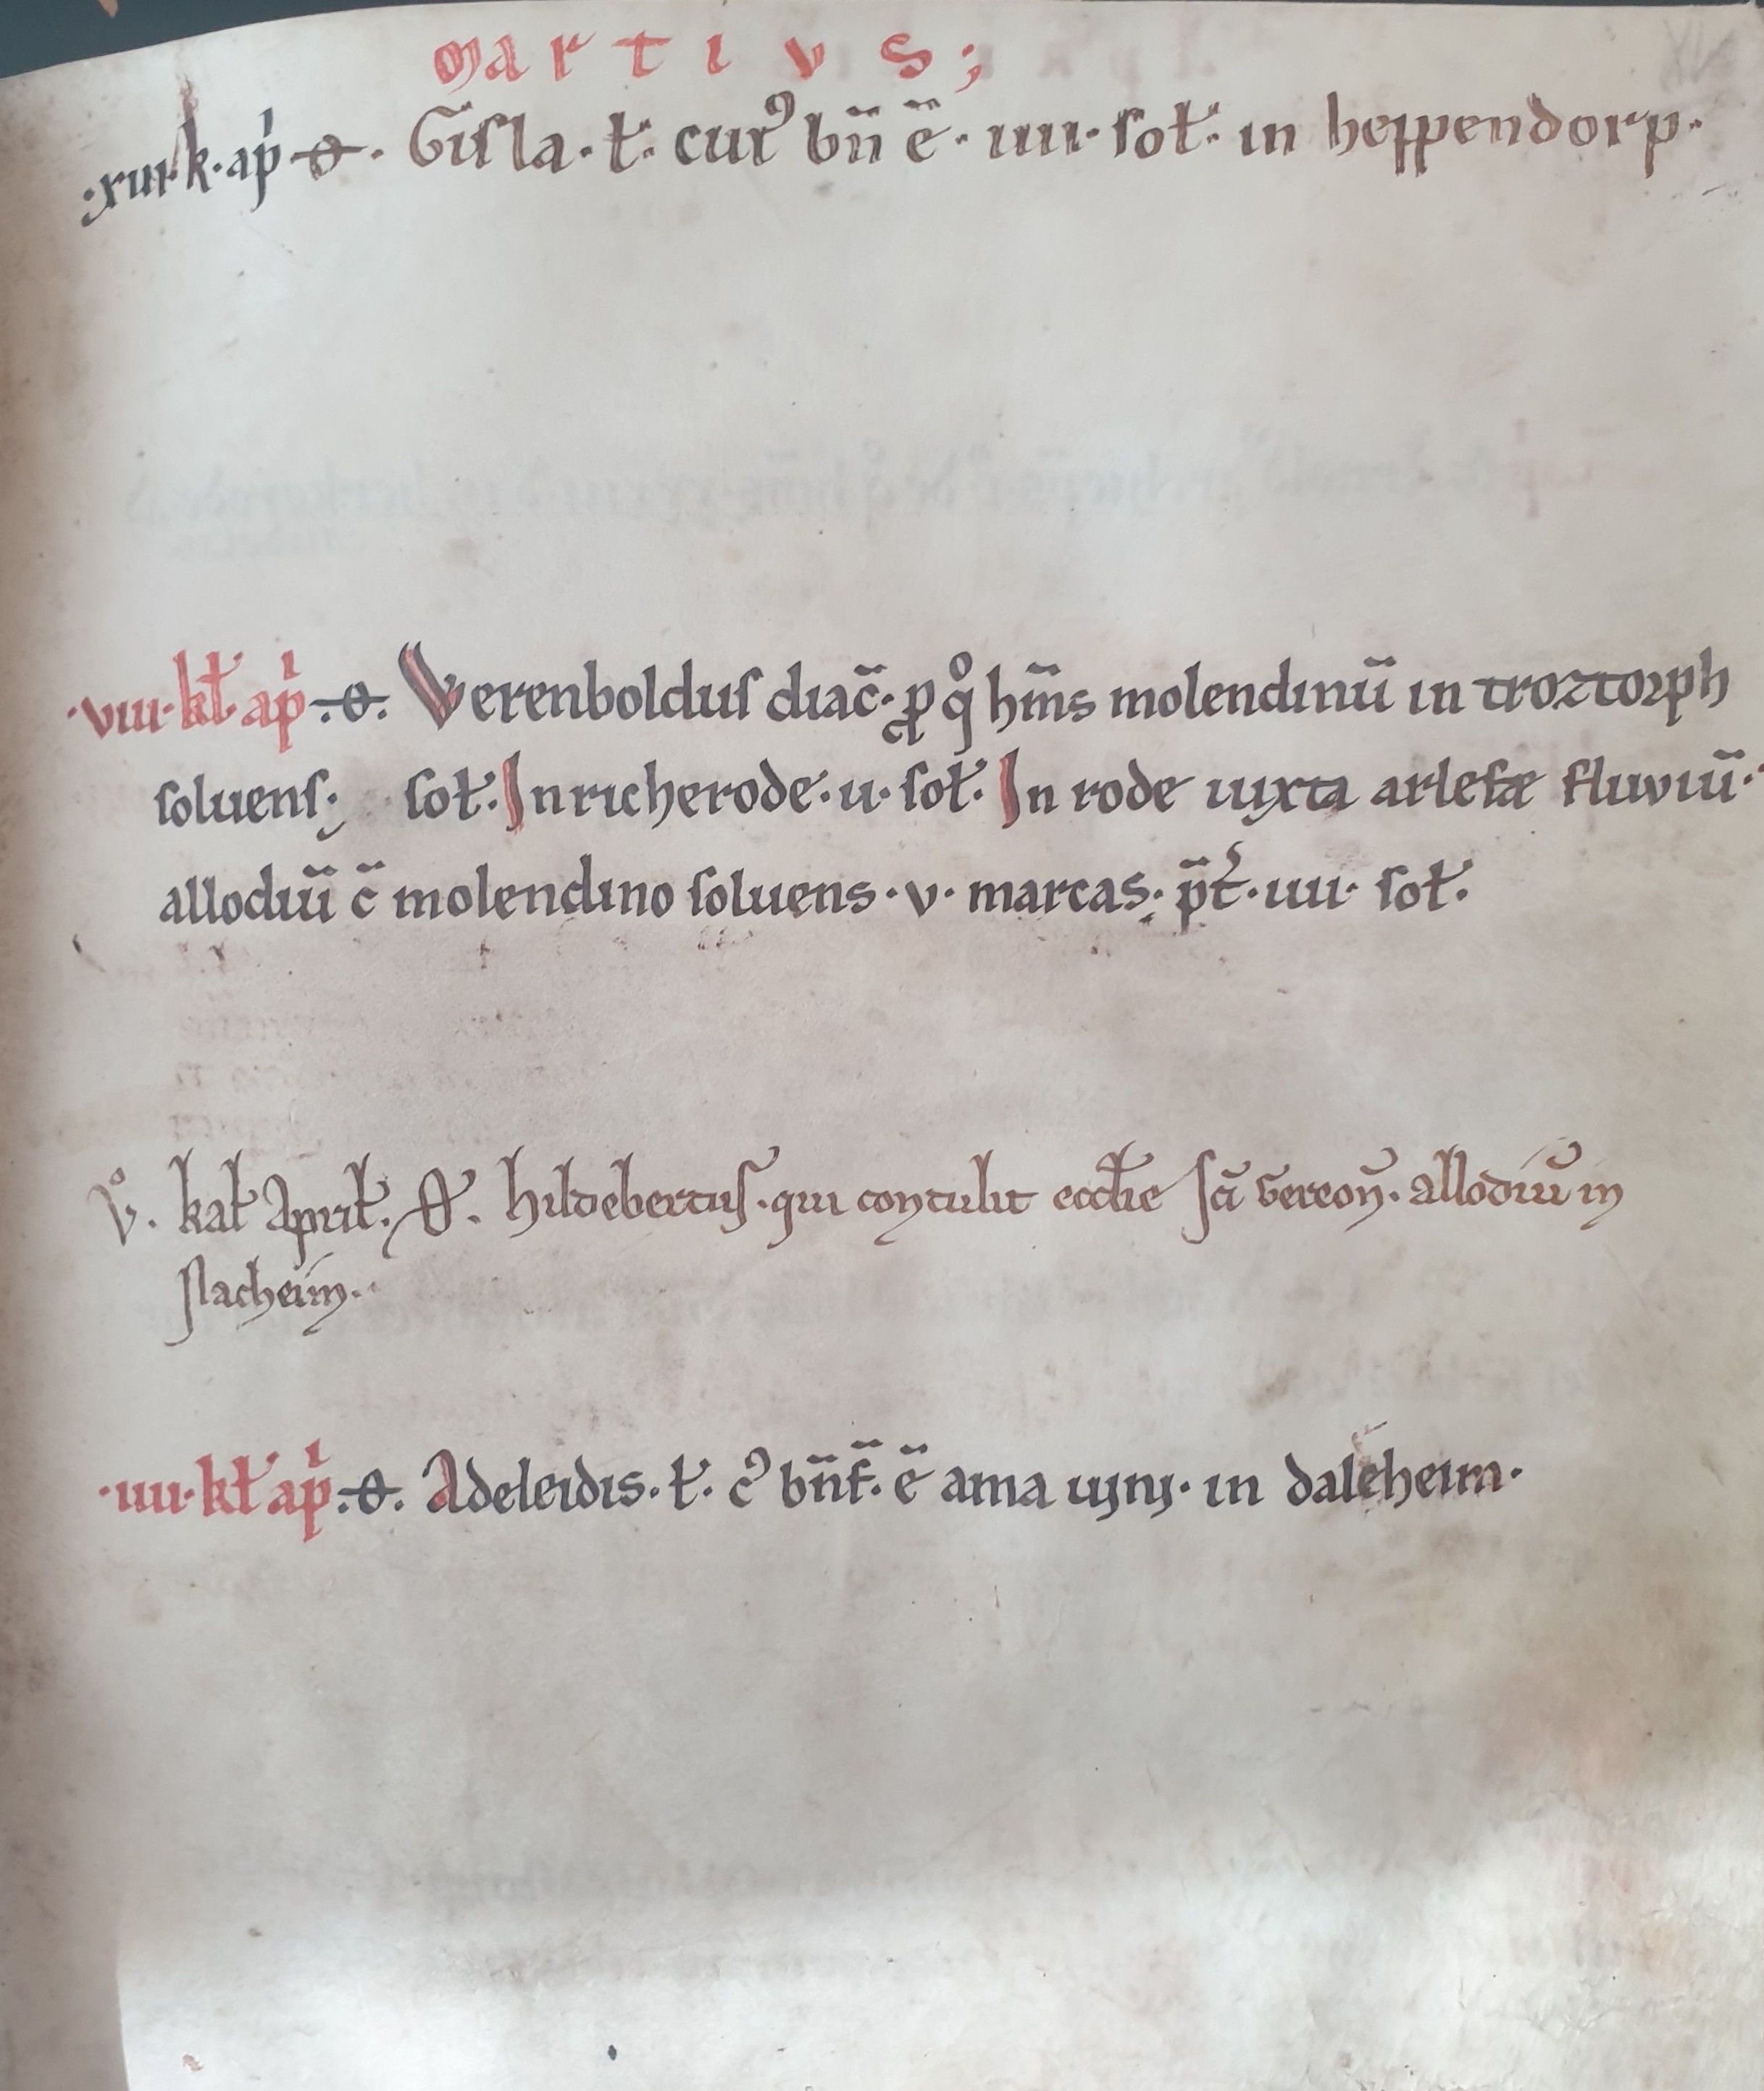 Martivs;
·xiiii·k·ap̍·ɵ· Gisla·ł· cuiꝰ bn̄ ē· iiii· soł· in heppendorp·
·viii·kł·ap̍·ɵ· Werenboldus diac̄· ꝓ qͦ hm̄s molendinū in troztorph
soluens; soł· In richerode· u· soł· In rode iuxta arlefæ fluviū·
allodiū c̄ molendino soluens· v· marcas· p̄t͛· iiii· soł·
V̊· kał Aprił· Ɵ· hildebertus· qui contulit eccłie sc̄i Gereon̄· allodiū in
slacheim·
·iiii·kł ap̍·ɵ· Adeleidis·ł· cꝰ bn̄f̄· ē ama uini· in daleheim·